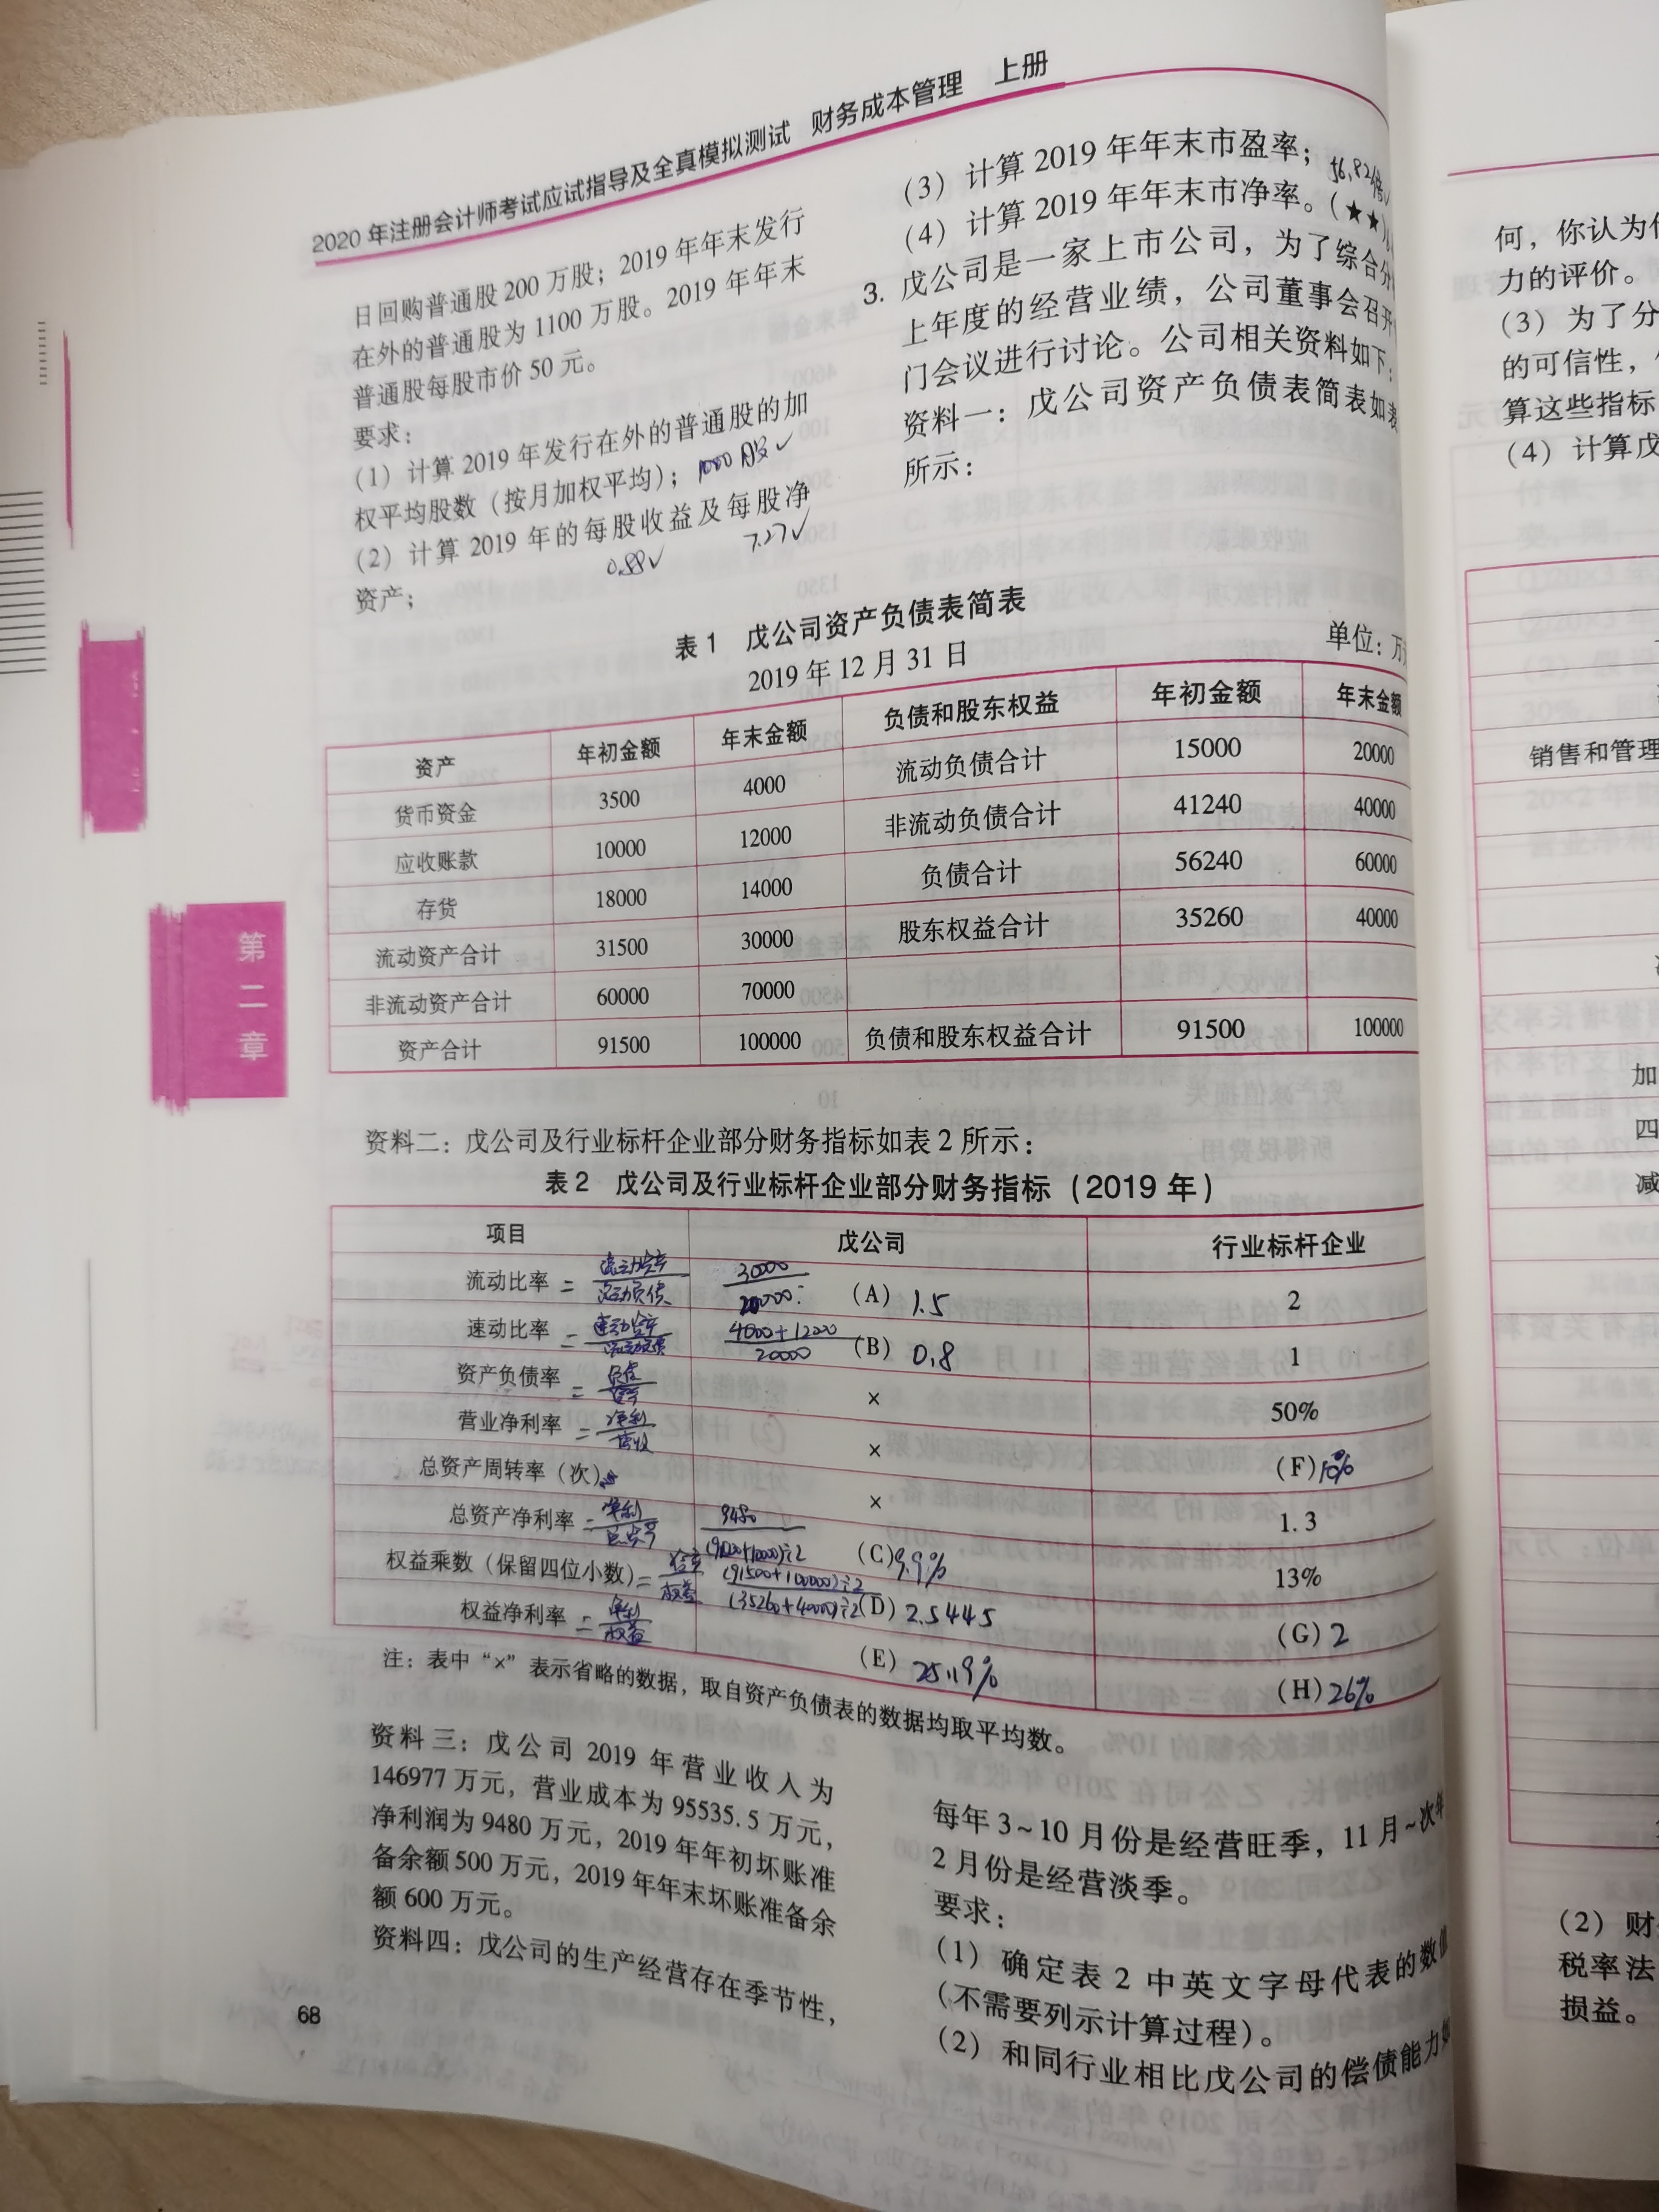 2020年注册会计师考试应试指导及全真模拟测试 财务成本管理 上册
日回购普通股200万股；2019年年末发行
在外的普通股为1100万股。2019年年末
普通股每股市价50元。
要求：
(1) 计算2019年发行在外的普通股的加
权平均股数（按月加权平均）； 1000万股✓
(2) 计算2019年的每股收益及每股净
0.88✓ 7.27✓
资产；
(3) 计算2019年年末市盈率； 56.82倍
(4) 计算2019年年末市净率。(★★)
3. 戊公司是一家上市公司，为了综合分
上年度的经营业绩，公司董事会召开
门会议进行讨论。公司相关资料如下：
资料一：戊公司资产负债表简表如表
所示：
表1 戊公司资产负债表简表
2019年12月31日
单位：万
资产 年初金额 年末金额 负债和股东权益 年初金额 年末金额
货币资金 3500 4000 流动负债合计 15000 20000
应收账款 10000 12000 非流动负债合计 41240 40000
存货 18000 14000 负债合计 56240 60000
流动资产合计 31500 30000 股东权益合计 35260 40000
非流动资产合计 60000 70000
资产合计 91500 100000 负债和股东权益合计 91500 100000
资料二：戊公司及行业标杆企业部分财务指标如表2所示：
表2 戊公司及行业标杆企业部分财务指标（2019年）
项目 戊公司 行业标杆企业
流动比率 = 流动资产/流动负债 30000/20000 (A) 1.5 2
速动比率 = 速动资产/流动负债 4000+12000/20000 (B) 0.8 1
资产负债率 = 负债/资产 × 50%
营业净利率 = 净利/营收 × (F) 10%
总资产周转率（次） × 1.3
总资产净利率 = 净利/总资产 9480/(91500+100000)÷2 (C) 9.9% 13%
权益乘数（保留四位小数） = 资产/权益 (91500+100000)÷2/(35260+40000)÷2 (D) 2.5445 (G) 2
权益净利率 = 净利/权益 (E) 25.19% (H) 26%
注：表中“×”表示省略的数据，取自资产负债表的数据均取平均数。
资料三：戊公司2019年营业收入为
146977万元，营业成本为95535.5万元，
净利润为9480万元，2019年年初坏账准
备余额500万元，2019年年末坏账准备余
额600万元。
资料四：戊公司的生产经营存在季节性，
每年3~10月份是经营旺季，11月~次年
2月份是经营淡季。
要求：
(1) 确定表2中英文字母代表的数值
（不需要列示计算过程）。
(2) 和同行业相比戊公司的偿债能力如
68
第二章
何，你认为
力的评价。
(3) 为了分
的可信性，
算这些指标
(4) 计算戊
销售和管理
加
四
减
(2) 财
税率法
损益。